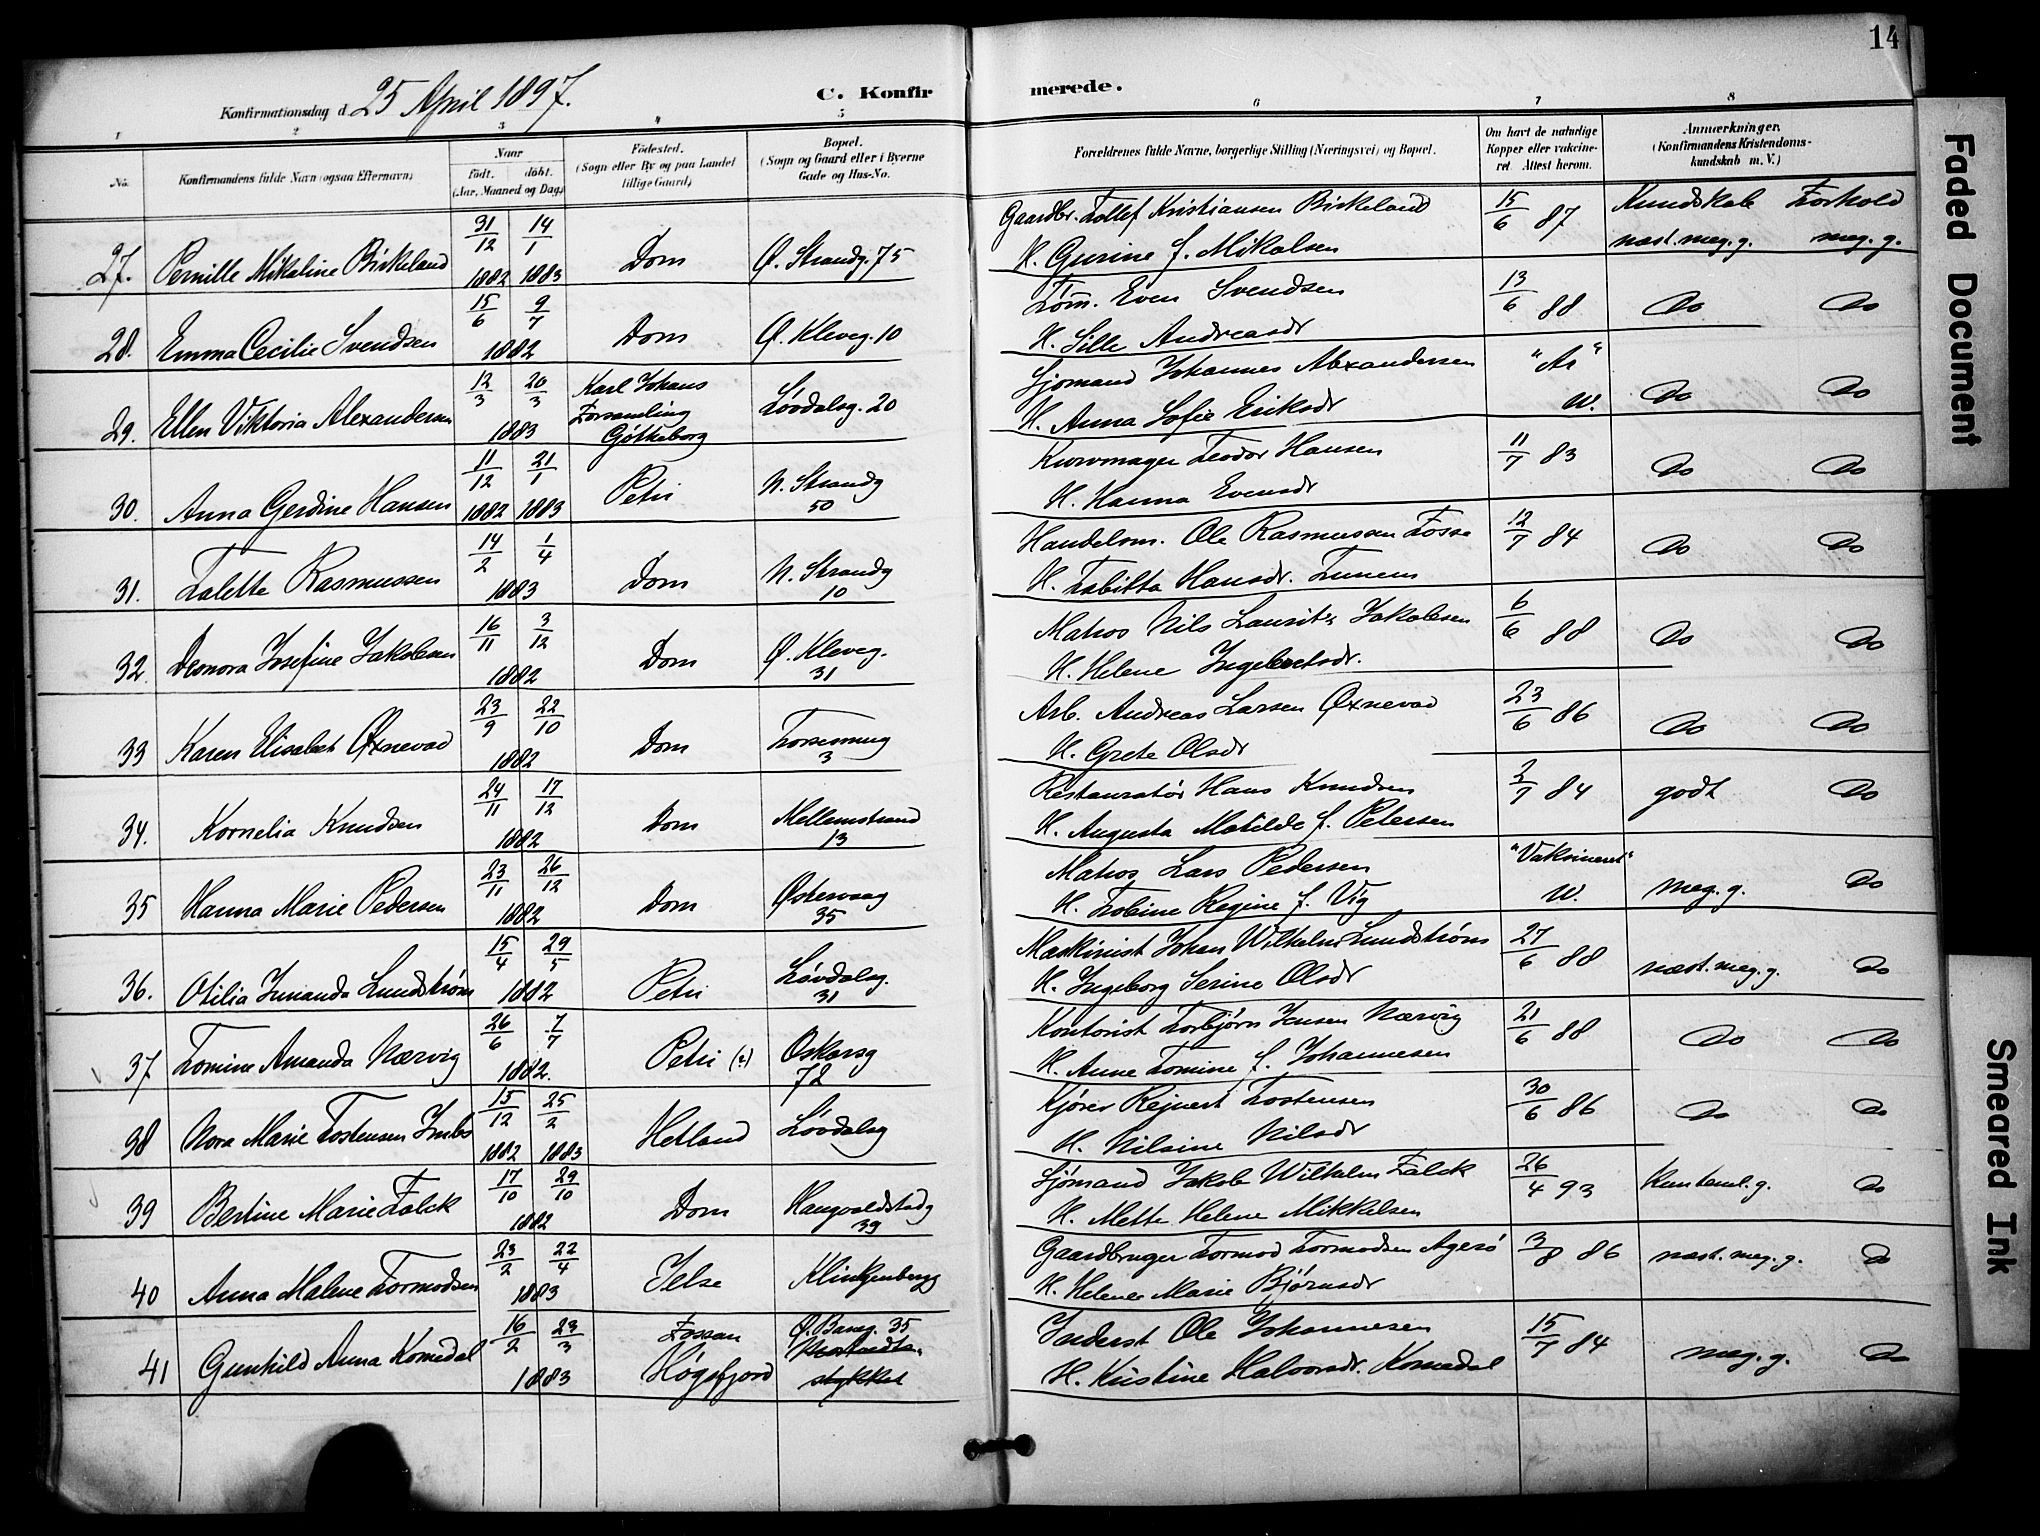 14
Konfirmationsdag d. 25 April 1897.
C. Konfirmerede.
1 2 3 4 5 6 7 8
No.
Konfirmandens fulde Navn (ogsaa Efternavn)
Naar
født. døbt.
(Aar, Maaned og Dag)
Födested.
(Sogn eller By og paa Landet
tillige Gaard)
Bopæl.
(Sogn og Gaard eller i Byerne
Gade og Hus-No.
Forældrenes fulde Navne, borgerlige Stilling (Næringsvei) og Bopæl.
Om havt de naturlige
Kopper eller vakcine-
ret. Attest herom.
Anmærkninger.
(Konfirmandens Kristendoms-
kundskab m. V.)
Kundskab Forhold
27. Pernille Mikaline Birkeland 31/12 1882 14/1 1883 Dom Ø. Strandg. 75 Gaardbr. Tollef Kristiansen Birkeland 15/6 87 næst. meg. g. meg. g.
H. Gurine f. Mikalsen
28. Emma Cecilie Svendsen 15/6 9/7 1882 Dom Ø. Kleveg. 10 Tøm. Even Svendsen 13/6 88 Do Do
H. Sille Andreasdr
29. Ellen Viktoria Alexandersen 12/3 20/3 1883 Karl Johans Forsamling Gøtheborg Løvdalsg. 20 Sjømand Johannes Alexandersen "Ar" W. Do Do
H. Anna Sofie Eriksdr
30. Anna Gerdine Hansen 11/12 1882 21/1 1883 Petri N. Strandg 50 Kurvmager Teodor Hansen 11/7 83 Do Do
H. Hanna Evensdr
31. Talette Rasmussen 14/2 1/4 1883 Dom N. Strandg 10 Handelsm. Ole Rasmussen Fosse 12/7 84 Do Do
H. Tabitta Hansdr.
32. Josefine Jakobsen 16/11 3/12 1882 Dom Ø. Kleveg. 31 Matros Nils Laurits Jakobsen 6/6 88 Do Do
H. Helene Ingebretsdr.
33 Karen Elisabet Øxnevad 23/9 22/10 1882 Dom 3 Arb. Andreas Larsen Øxnevad 23/6 86 Do Do
H. Grete Olsdr
34. Kornelia Knudsen 24/11 17/12 1882 Dom Mellemstrand 13 Restauratør Hans Knudsen 2/7 84 godt Do
H. Augusta Matilde f. Petersen
35 Hanna Marie Pedersen 23/11 26/12 1882 Dom Østervaag 35 Matros Lars Pedersen "Vaksineret" W. meg. g. Do
H. Tobine Regine f. Vig
36. Otilia Lundstrøm 15/4 29/5 1882 Petri Løvdalsg. 31 Maskinist Johan Wilhelm Lundstrøm 27/6 88 næst. meg. g. Do
H. Ingeborg Serine Olsdr
37 Tomine Amanda Nærvig 26/6 7/7 1882. Petri (?) Oskarsg 72 Kontorist Torbjørn Jensen Nærvig 21/6 88 Do Do
H. Anne Tomine f. Johannesen
38 Nora Marie Tostensen 15/12 1882 25/2 1883 Hetland Løvdalsg Kjører Rejnert Tostensen 30/6 86 Do Do
H. Nilsine Nilsdr
39 Bertine Marie Falck 17/10 29/10 1882 Dom Haugvaldstadg 39 Sjømand Jakob Wilhelm Falck 26/4 93 Do
H. Mette Helene Mikkelsen
40 Anna Malene Tormodsen 23/2 22/4 1883 Jelse Klinkenbergg Gaardbruger Tormod Tormodsen Agerø 3/8 86 næst. meg. g. Do
H. Helene Marie Bjørnsdr
41 Gunhild Anna Komedal 16/2 23/3 1883 Fossan Høgsfjord Ø. Baneg. 35 Inderst Ole Johannesen 15/7 84 meg. g. Do
H. Kristine Halvorsdr. Komedal
Faded Document
Smeared Ink